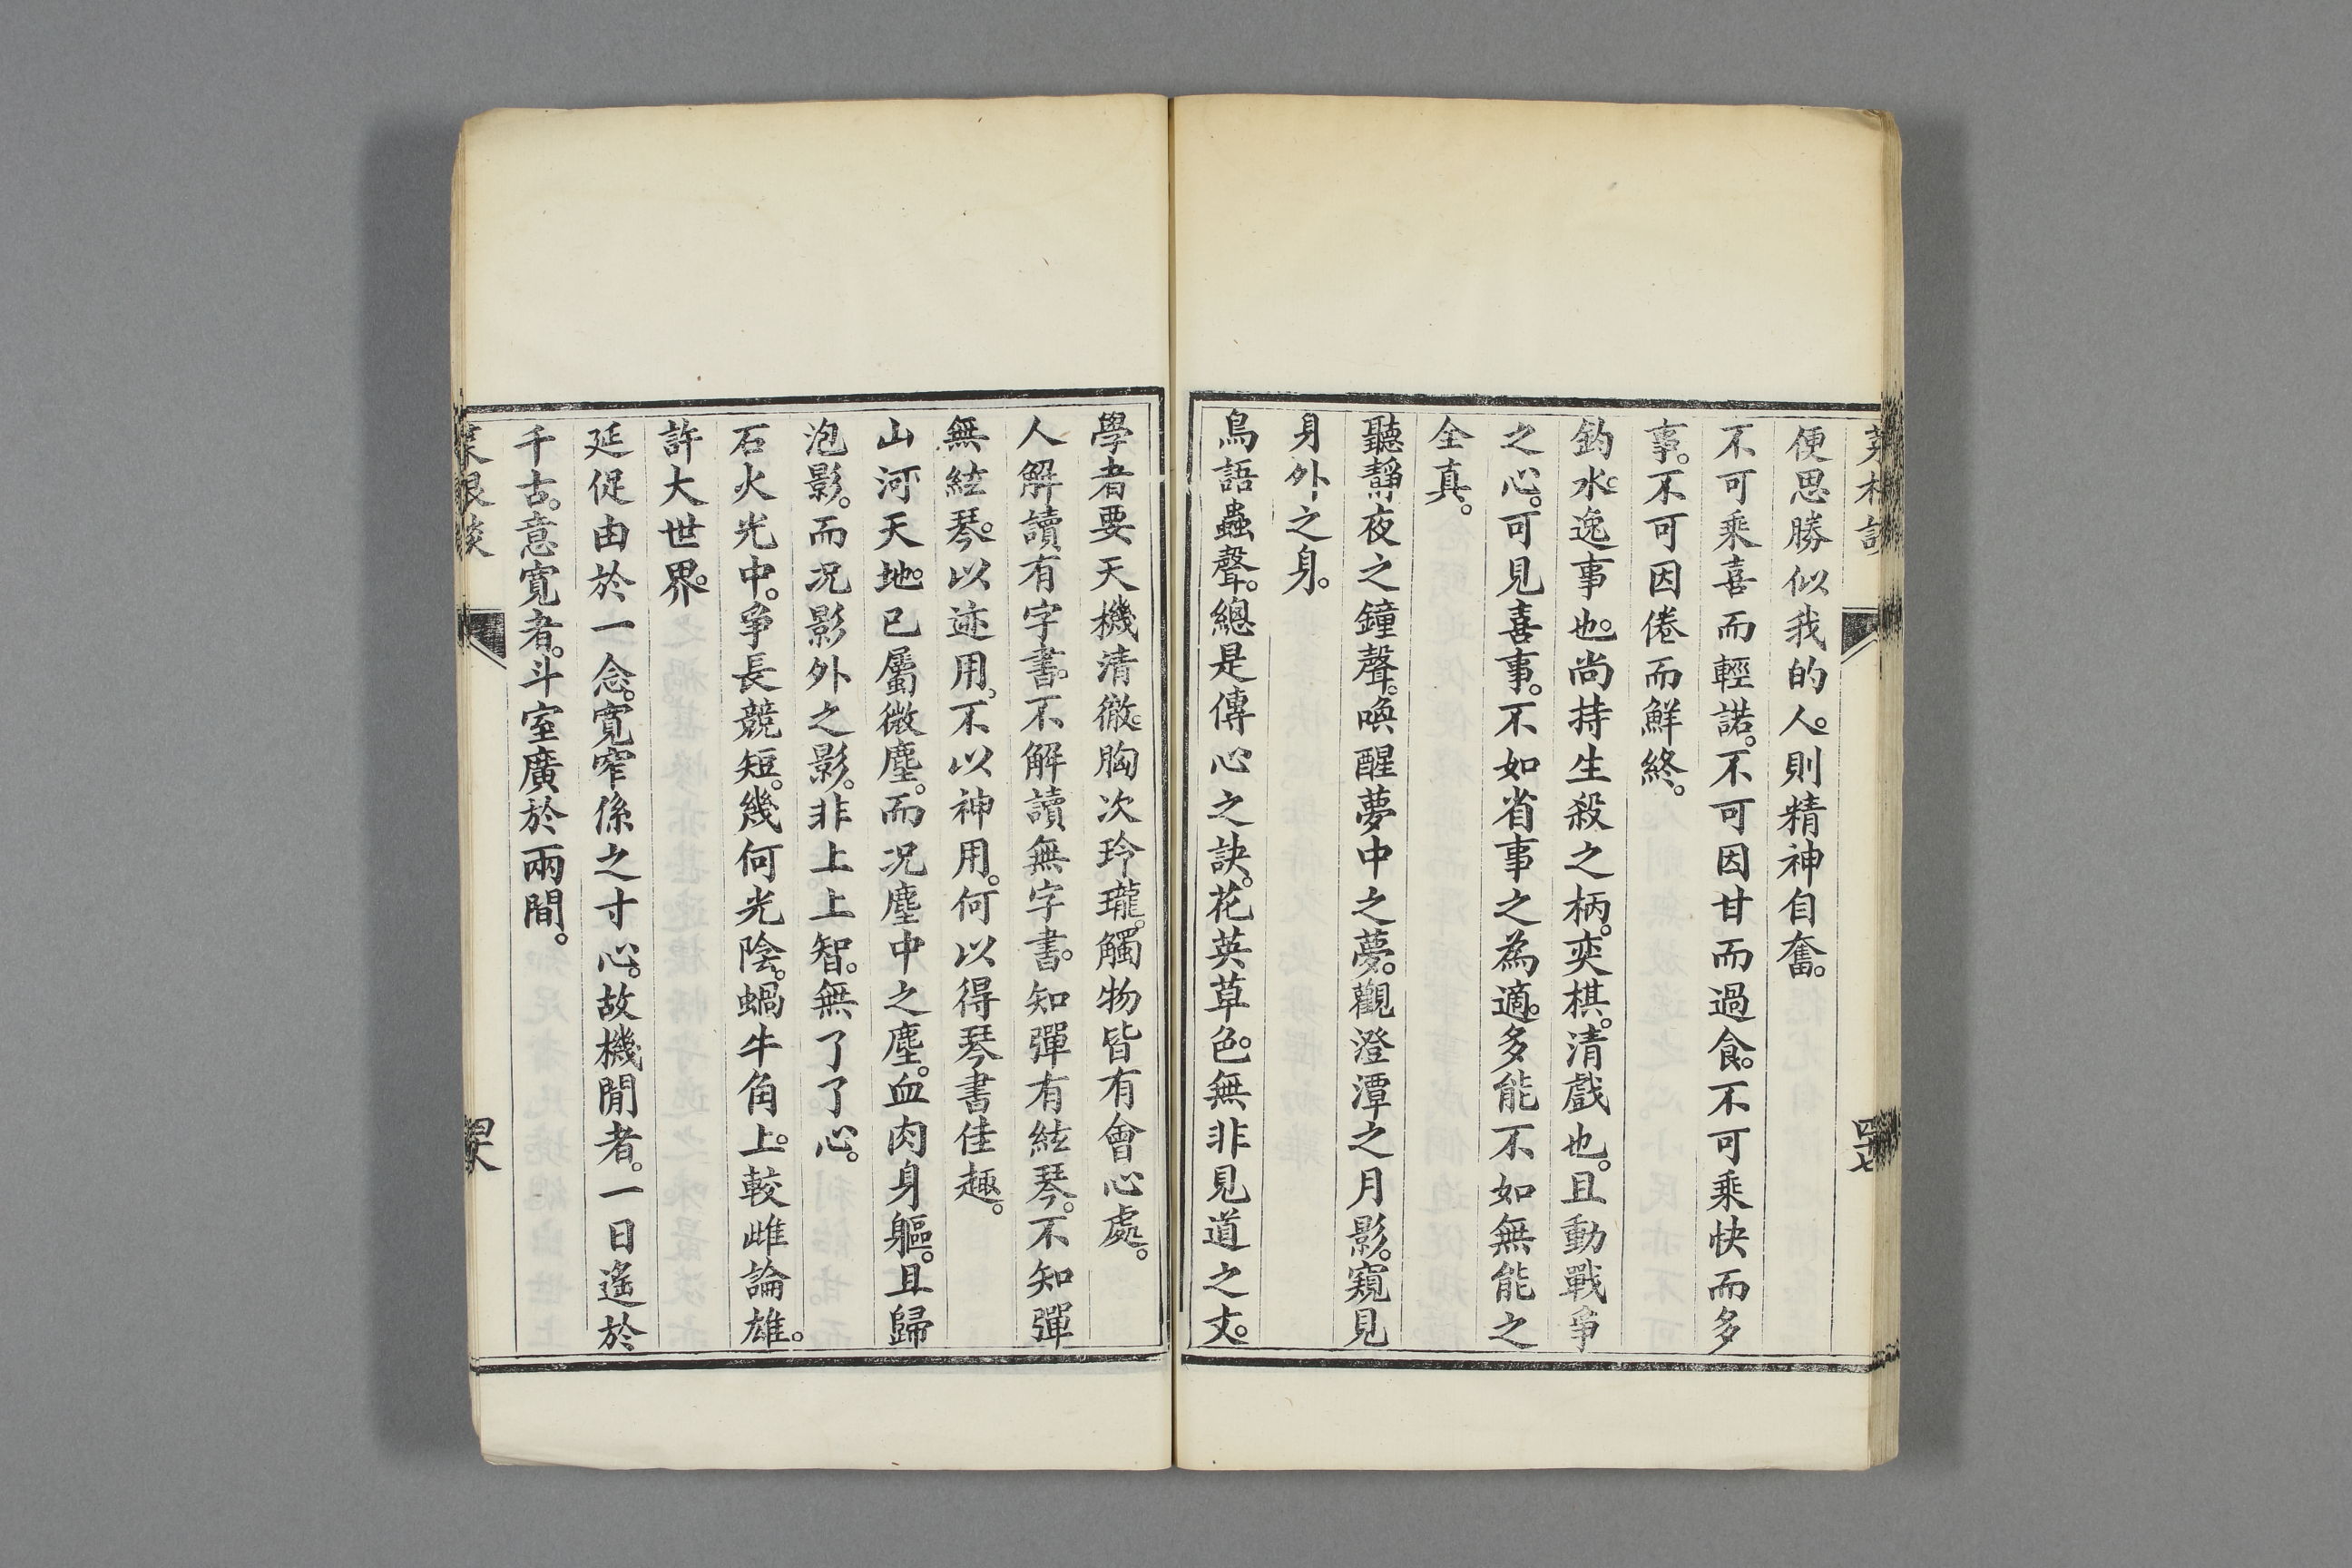 便思勝似我的人。則精神自奮。
不可乘喜而輕諾。不可因甘而過食。不可乘快而多
事。不可因倦而鮮終。
釣水。逸事也。尚持生殺之柄。奕棋。清戲也。且動戰爭
之心。可見喜事。不如省事之為適。多能不如無能之
全真。
聽靜夜之鐘聲。喚醒夢中之夢。觀澄潭之月影。窺見
身外之身。
鳥語蟲聲。總是傳心之訣。花英草色。無非見道之文。
學者要天機清徹。胸次玲瓏。觸物皆有會心處。
人解讀有字書。不解讀無字書。知彈有絃琴。不知彈
無絃琴。以迹用。不以神用。何以得琴書佳趣。
山河天地。已屬微塵。而况塵中之塵。血肉身軀。且歸
泡影。而况影外之影。非上上智。無了了心。
石火光中。爭長競短。幾何光陰。蝸牛角上。較雌論雄。
許大世界。
延促由於一念。寬窄係之寸心。故機閒者。一日遙於
千古。意寬者。斗室廣於兩間。
菜根談